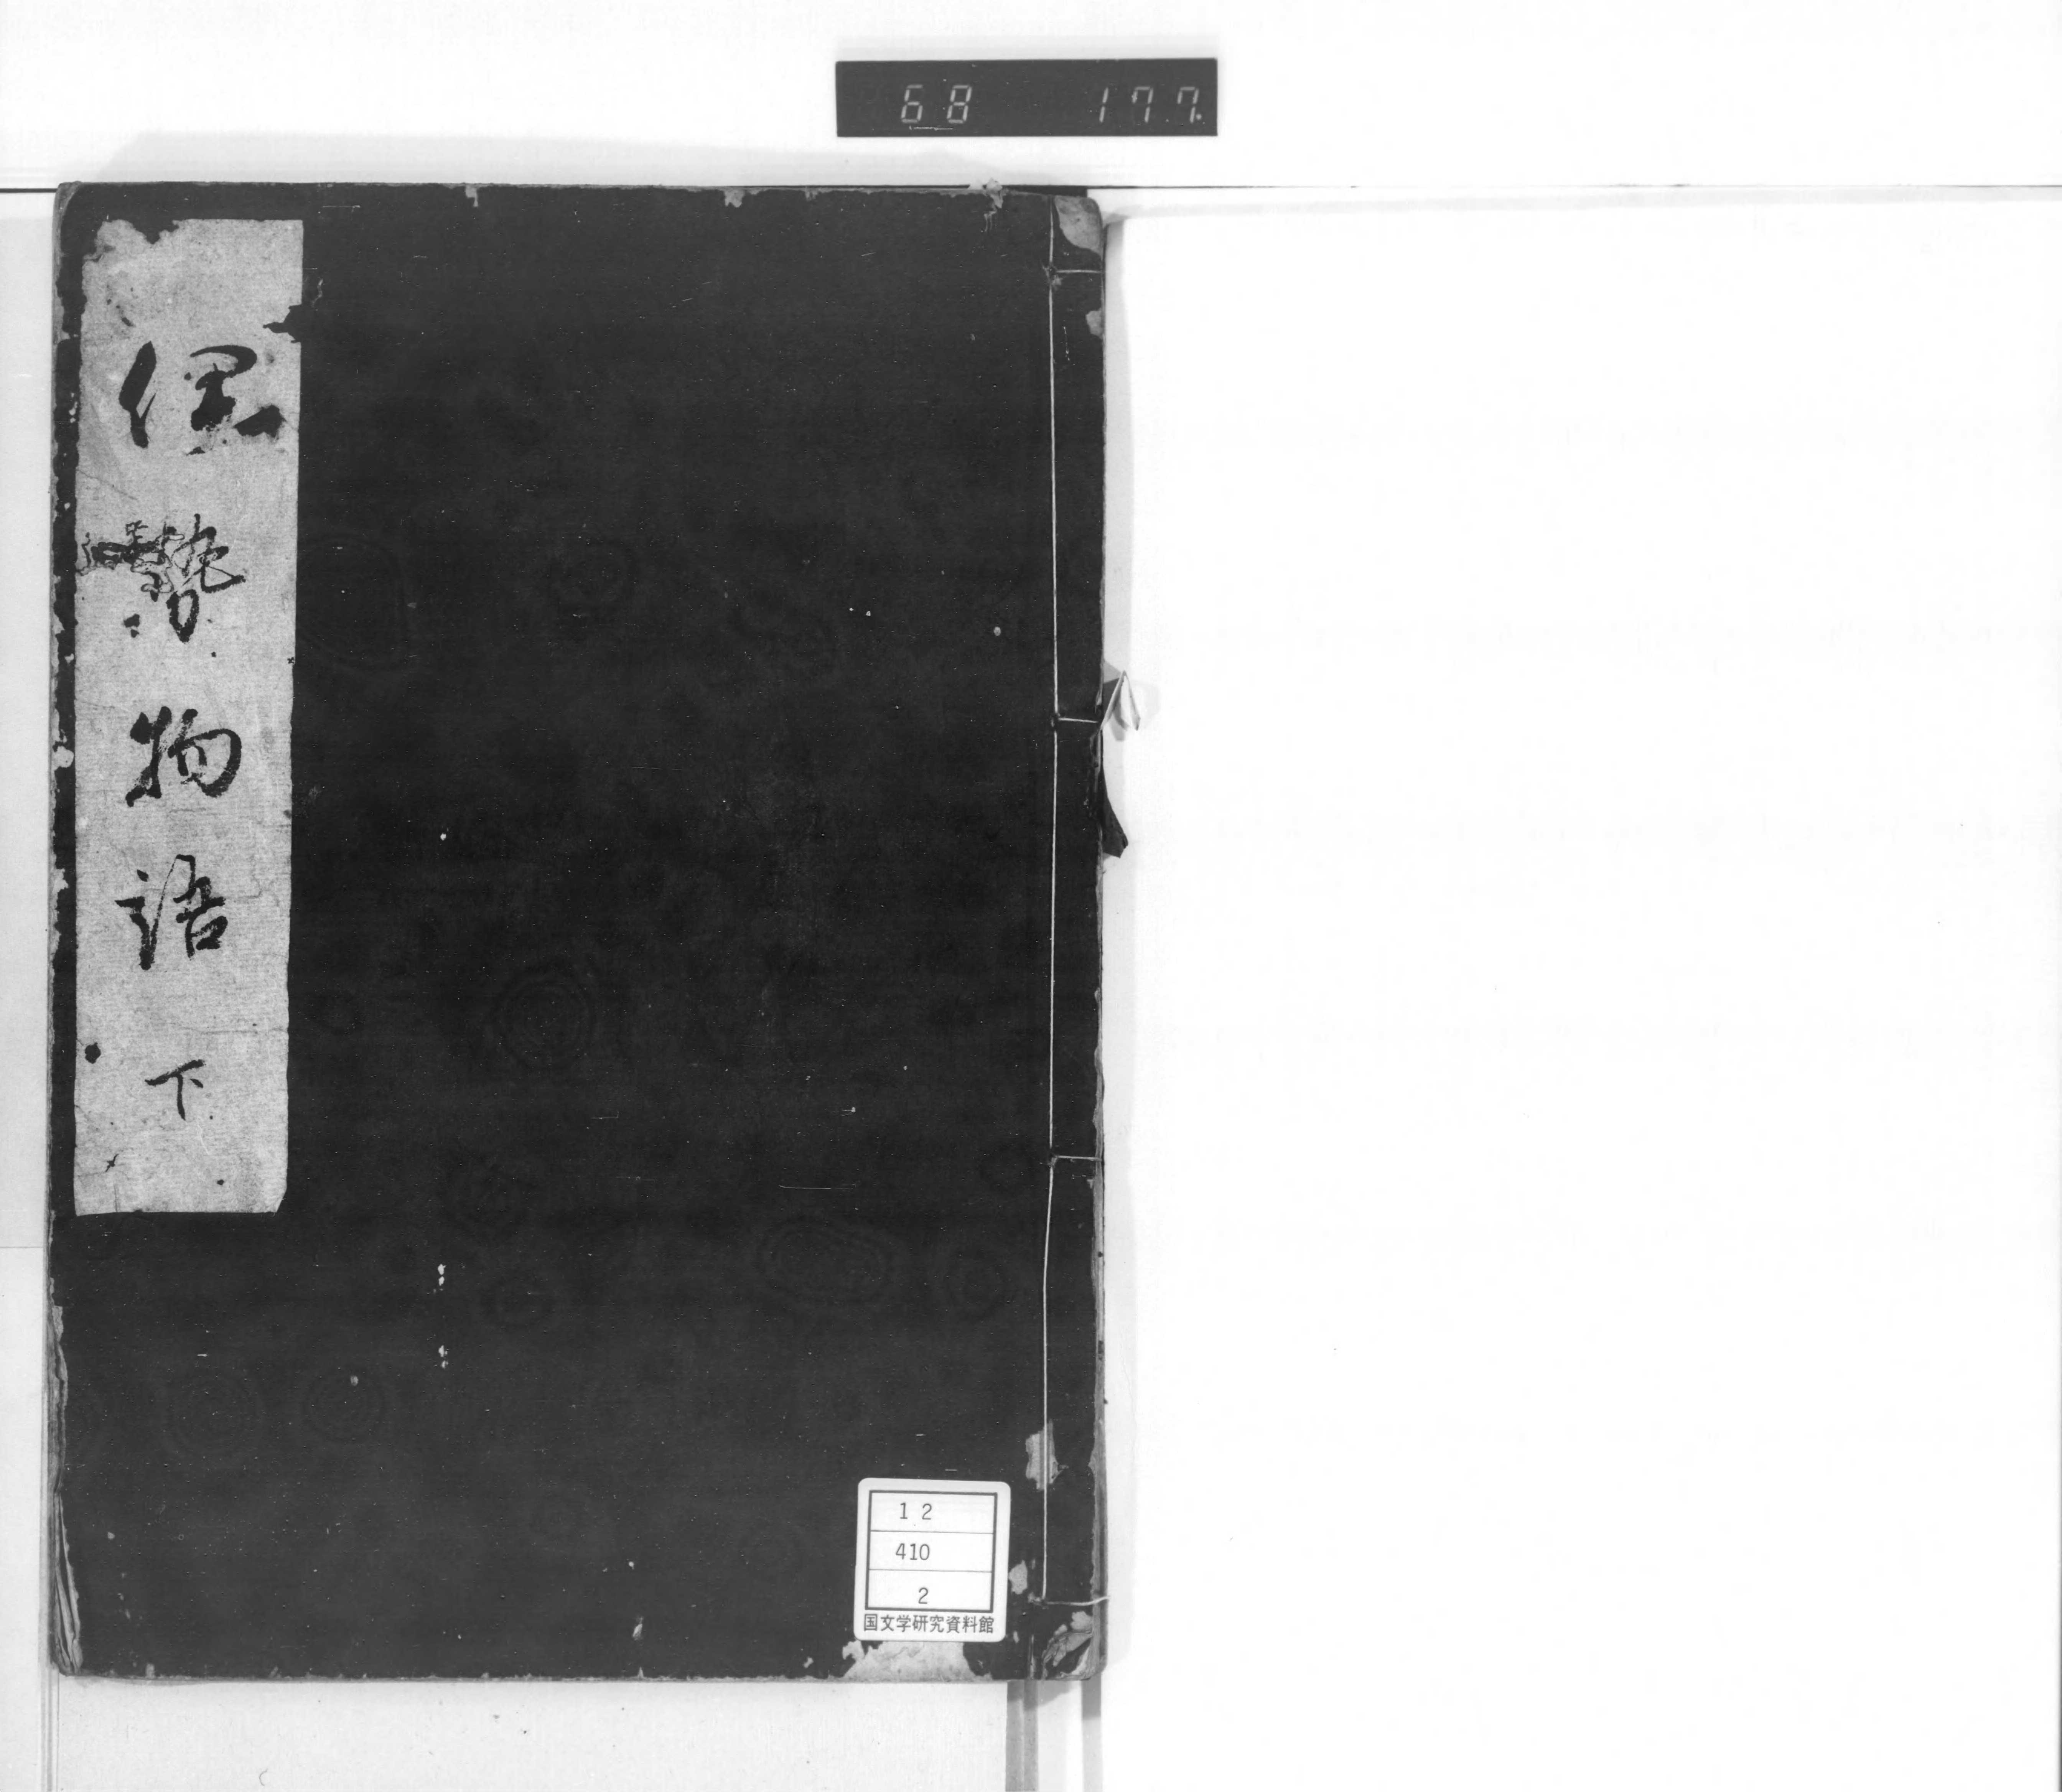 68 177
伊勢物語 下
12
410
2
国文学研究資料館